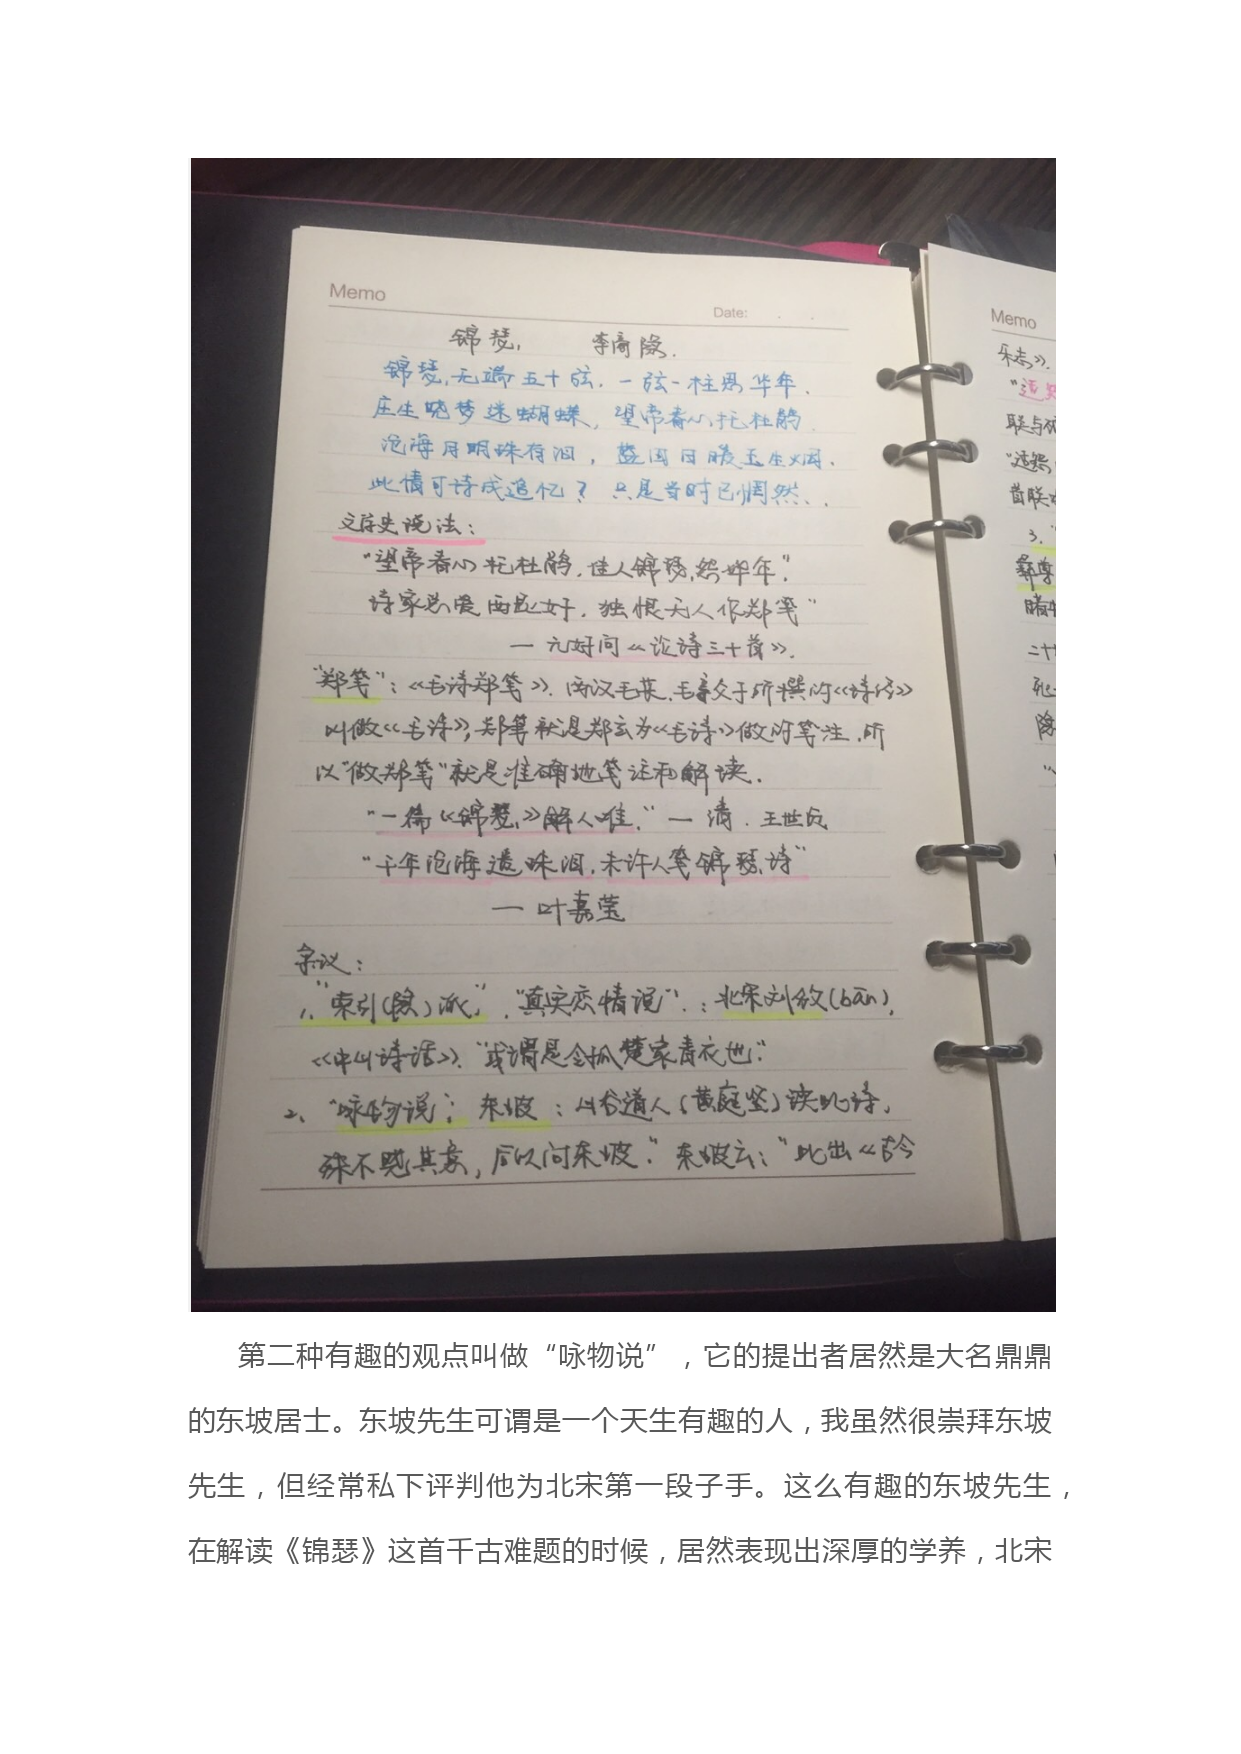 Memo
Date: . .
锦瑟, 李商隐.
锦瑟,无端五十弦.一弦一柱思华年.
庄生晓梦迷蝴蝶,望帝春心托杜鹃.
沧海月明珠有泪,蓝田日暖玉生烟.
此情可待成追忆?只是当时已惘然.
文学史说法:
“望帝春心托杜鹃.佳人锦瑟,怨华年”.
诗家总爱西昆好.独恨无人作郑笺”
— 元好问《论诗三十首》.
“郑笺”:《毛诗郑笺》.两汉毛苌.毛亨父子所撰的《诗经》
叫做《毛诗》,郑笺就是郑玄为《毛诗》做的笺注.所
以“做郑笺”就是准确地笺证和解读.
“一篇《锦瑟,》解人难.” — 清.王世贞
“千年沧海遗珠泪,未许人笺锦瑟,诗”
— 叶嘉莹
杂议:
1、“索引(隐)派”.“真实恋情说”:北宋刘攽(bān),
《中山诗话》.“或谓是令狐楚家青衣也.”
2、“咏物说”:东坡:山谷道人(黄庭坚)读此诗,
殊不晓其意,后以问东坡.”东坡云:“此出《古今
Memo
乐志》.
“适
联与
“适怨,
首联
3.
二十
第二种有趣的观点叫做“咏物说”，它的提出者居然是大名鼎鼎
的东坡居士。东坡先生可谓是一个天生有趣的人，我虽然很崇拜东坡
先生，但经常私下评判他为北宋第一段子手。这么有趣的东坡先生，
在解读《锦瑟》这首千古难题的时候，居然表现出深厚的学养，北宋